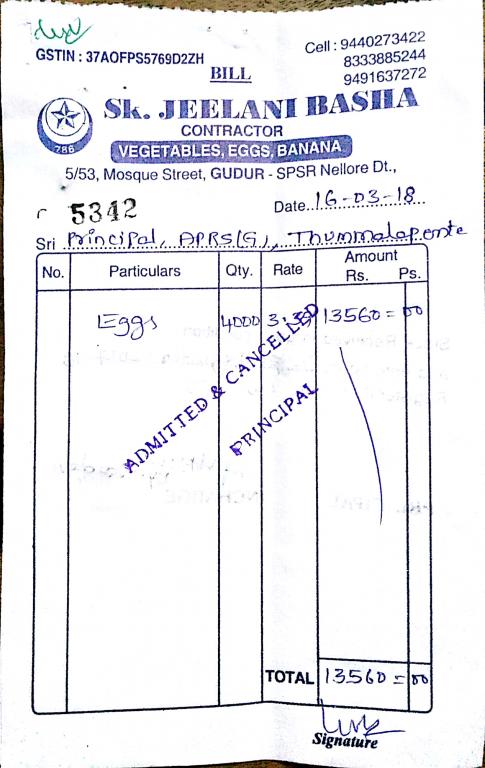 GSTIN : 37AOFPS5769D2ZH
Cell : 9440273422
8333885244
9491637272
BILL
Sk. JEELANI BASHA
CONTRACTOR
786
VEGETABLES, EGGS, BANANA
5/53, Mosque Street, GUDUR - SPSR Nellore Dt.,
5342
Date 16-03-18
Sri Principal, APRS(G), Thummalaponta
No. Particulars Qty. Rate Amount
Rs. Ps.
Eggs 4000 3.39 13560 = 00
ADMITTED & CANCELLED
PRINCIPAL
TOTAL 13560 = 00
Signature